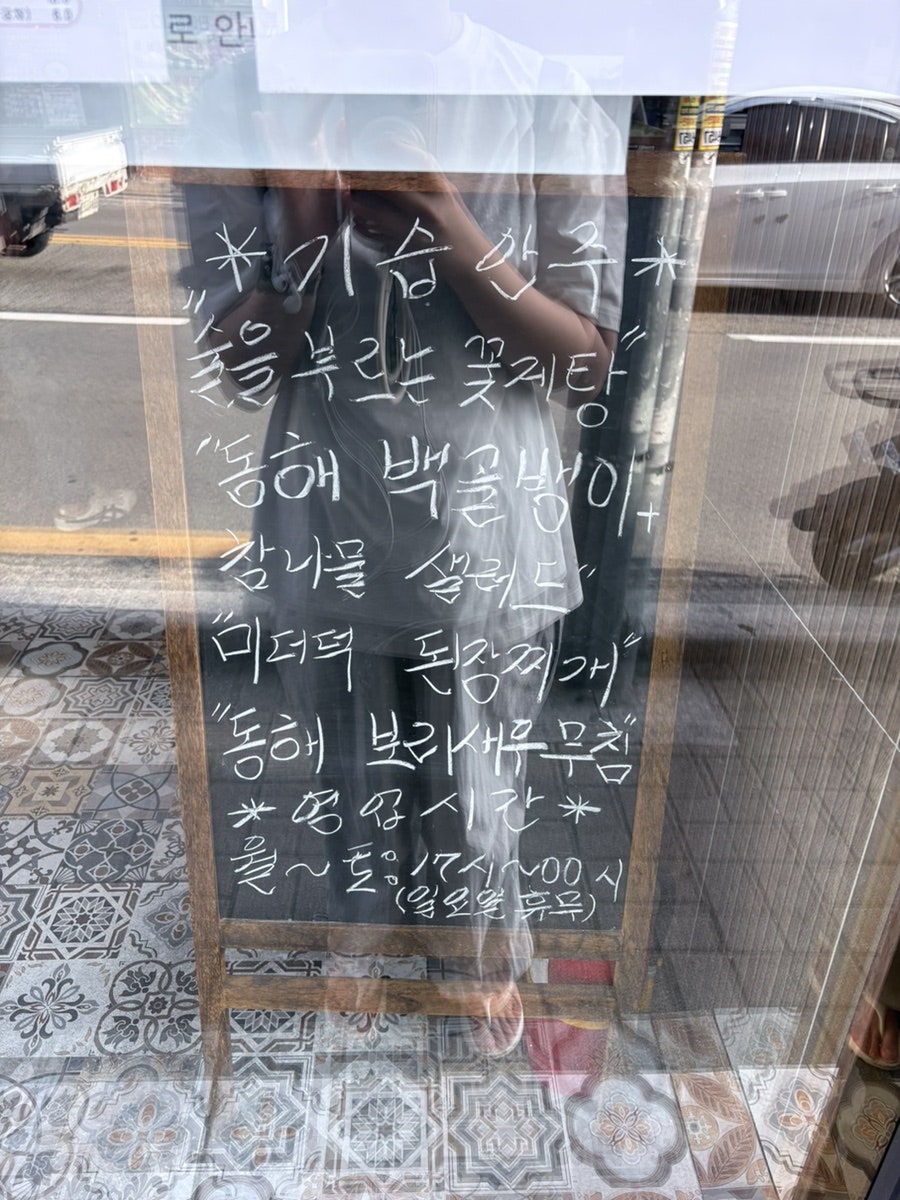 로 안
* 기습 안주 *
"술을 부르는 꽃게탕"
"동해 백골뱅이+
참나물 샐러드"
"미더덕 된장찌개"
"동해 보리새우무침"
* 영업시간 *
월~토: 17시~00시
(일요일 휴무)